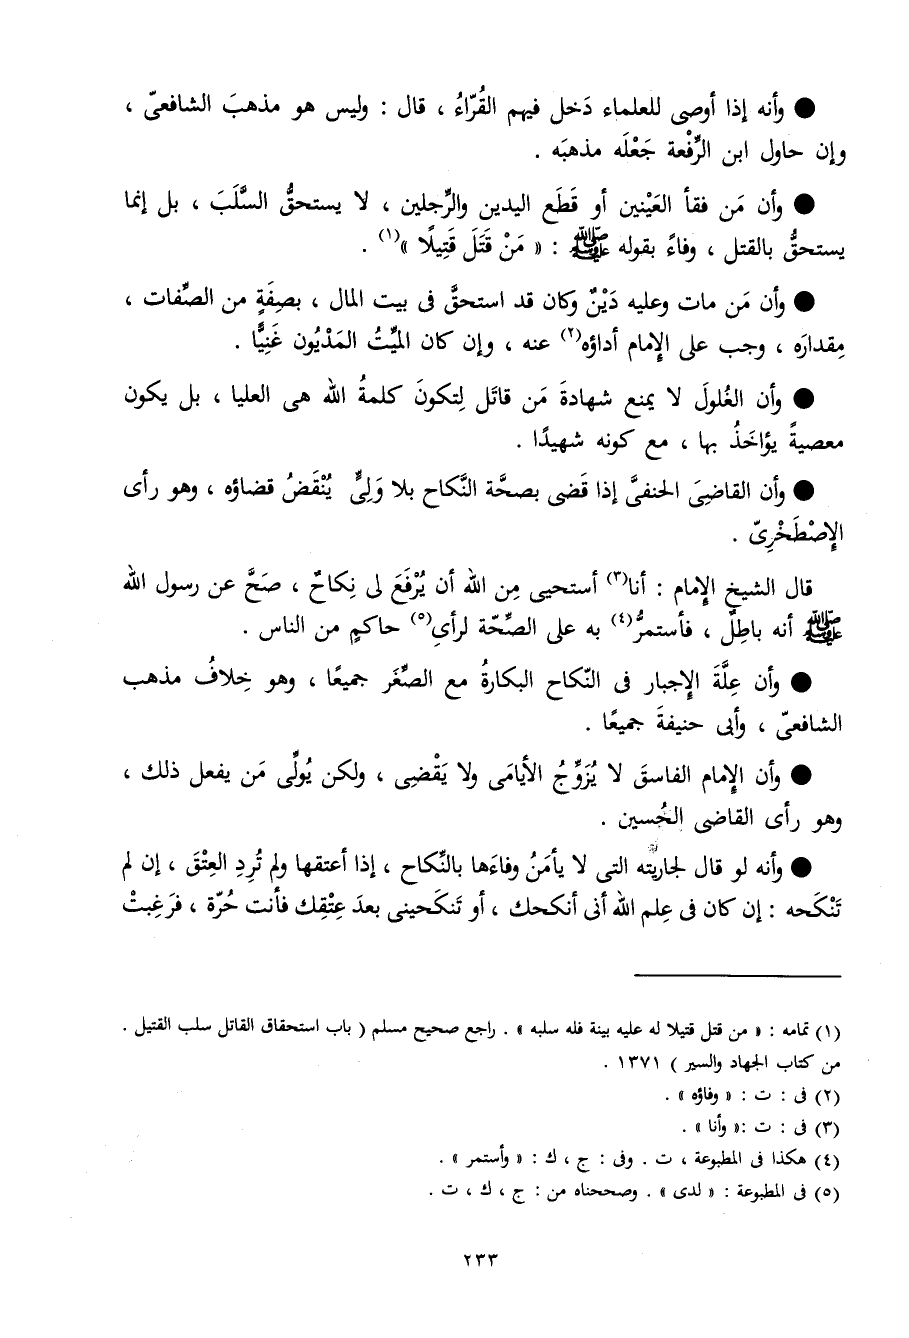 ● وأنه إذا أوصى للعلماء دَخل فيهم القُرّاءُ ، قال : وليس هو مذهبَ الشافعىّ ،
وإن حاول ابن الرِّفْعة جَعْلَه مذهبَه .
● وأن مَن فقأ العَيْنين أو قَطَع اليدين والرِّجلين ، لا يستحقُّ السَّلَبَ ، بل إنما
يستحقُّ بالقتل ، وفاءً بقوله ﷺ : « مَنْ قَتَلَ قَتِيلًا »(١) .
● وأن مَن مات وعليه دَيْنٌ وكان قد استحقَّ فى بيت المال ، بصِفَةٍ من الصِّفات ،
مِقدارَه ، وجب على الإِمام أداؤه(٢) عنه ، وإن كان الميِّتُ المَدْيُون غَنِيًّا .
● وأن الغُلولَ لا يمنع شهادةَ مَن قاتَل لِتكونَ كلمةُ الله هى العليا ، بل يكون
معصيةً يؤاخَذُ بها ، مع كونه شهيدًا .
● وأن القاضِىَ الحنفىَّ إذا قَضى بصحَّة النَّكاح بلا وَلِىٍّ يُنْقَضُ قضاؤه ، وهو رأى
الإِصْطَخْرِىّ .
قال الشيخ الإِمام : أنا(٣) أستحيى مِن الله أن يُرْفَعَ لى نِكاحٌ ، صَحَّ عن رسول الله
ﷺ أنه باطِلٌ ، فأستمرُّ(٤) به على الصِّحّة لرأىِ(٥) حاكمٍ من الناس .
● وأن عِلَّةَ الإِجبار فى النّكاح البكارةُ مع الصِّغَر جميعًا ، وهو خِلافُ مذهب
الشافعىّ ، وأبى حنيفةَ جميعًا .
● وأن الإِمام الفاسقَ لا يُزَوِّجُ الأيامَى ولا يَقْضِى ، ولكن يُولِّى مَن يفعل ذلك ،
وهو رأى القاضى الحُسين .
● وأنه لو قال لجاريتِه التى لا يأمَنُ وفاءَها بالنِّكاح ، إذا أعتقها ولم تُرِدِ العِتْقَ ، إن لم
تَنْكَحه : إن كان فى عِلم الله أنى أنكحك ، أو تَنكَحينى بعدَ عِتْقك فأنت حُرّة ، فرَغِبتْ
(١) تمامه : « من قتل قتيلا له عليه بينة فله سلبه » . راجع صحيح مسلم ( باب استحقاق القاتل سلب القتيل .
من كتاب الجهاد والسير ) ١٣٧١ .
(٢) فى : ت : « وفاؤه » .
(٣) فى : ت :« وأنا » .
(٤) هكذا فى المطبوعة ، ت . وفى : ج ، ك : « وأستمر » .
(٥) فى المطبوعة : « لدى » . وصححناه من : ج ، ك ، ت .
٢٣٣